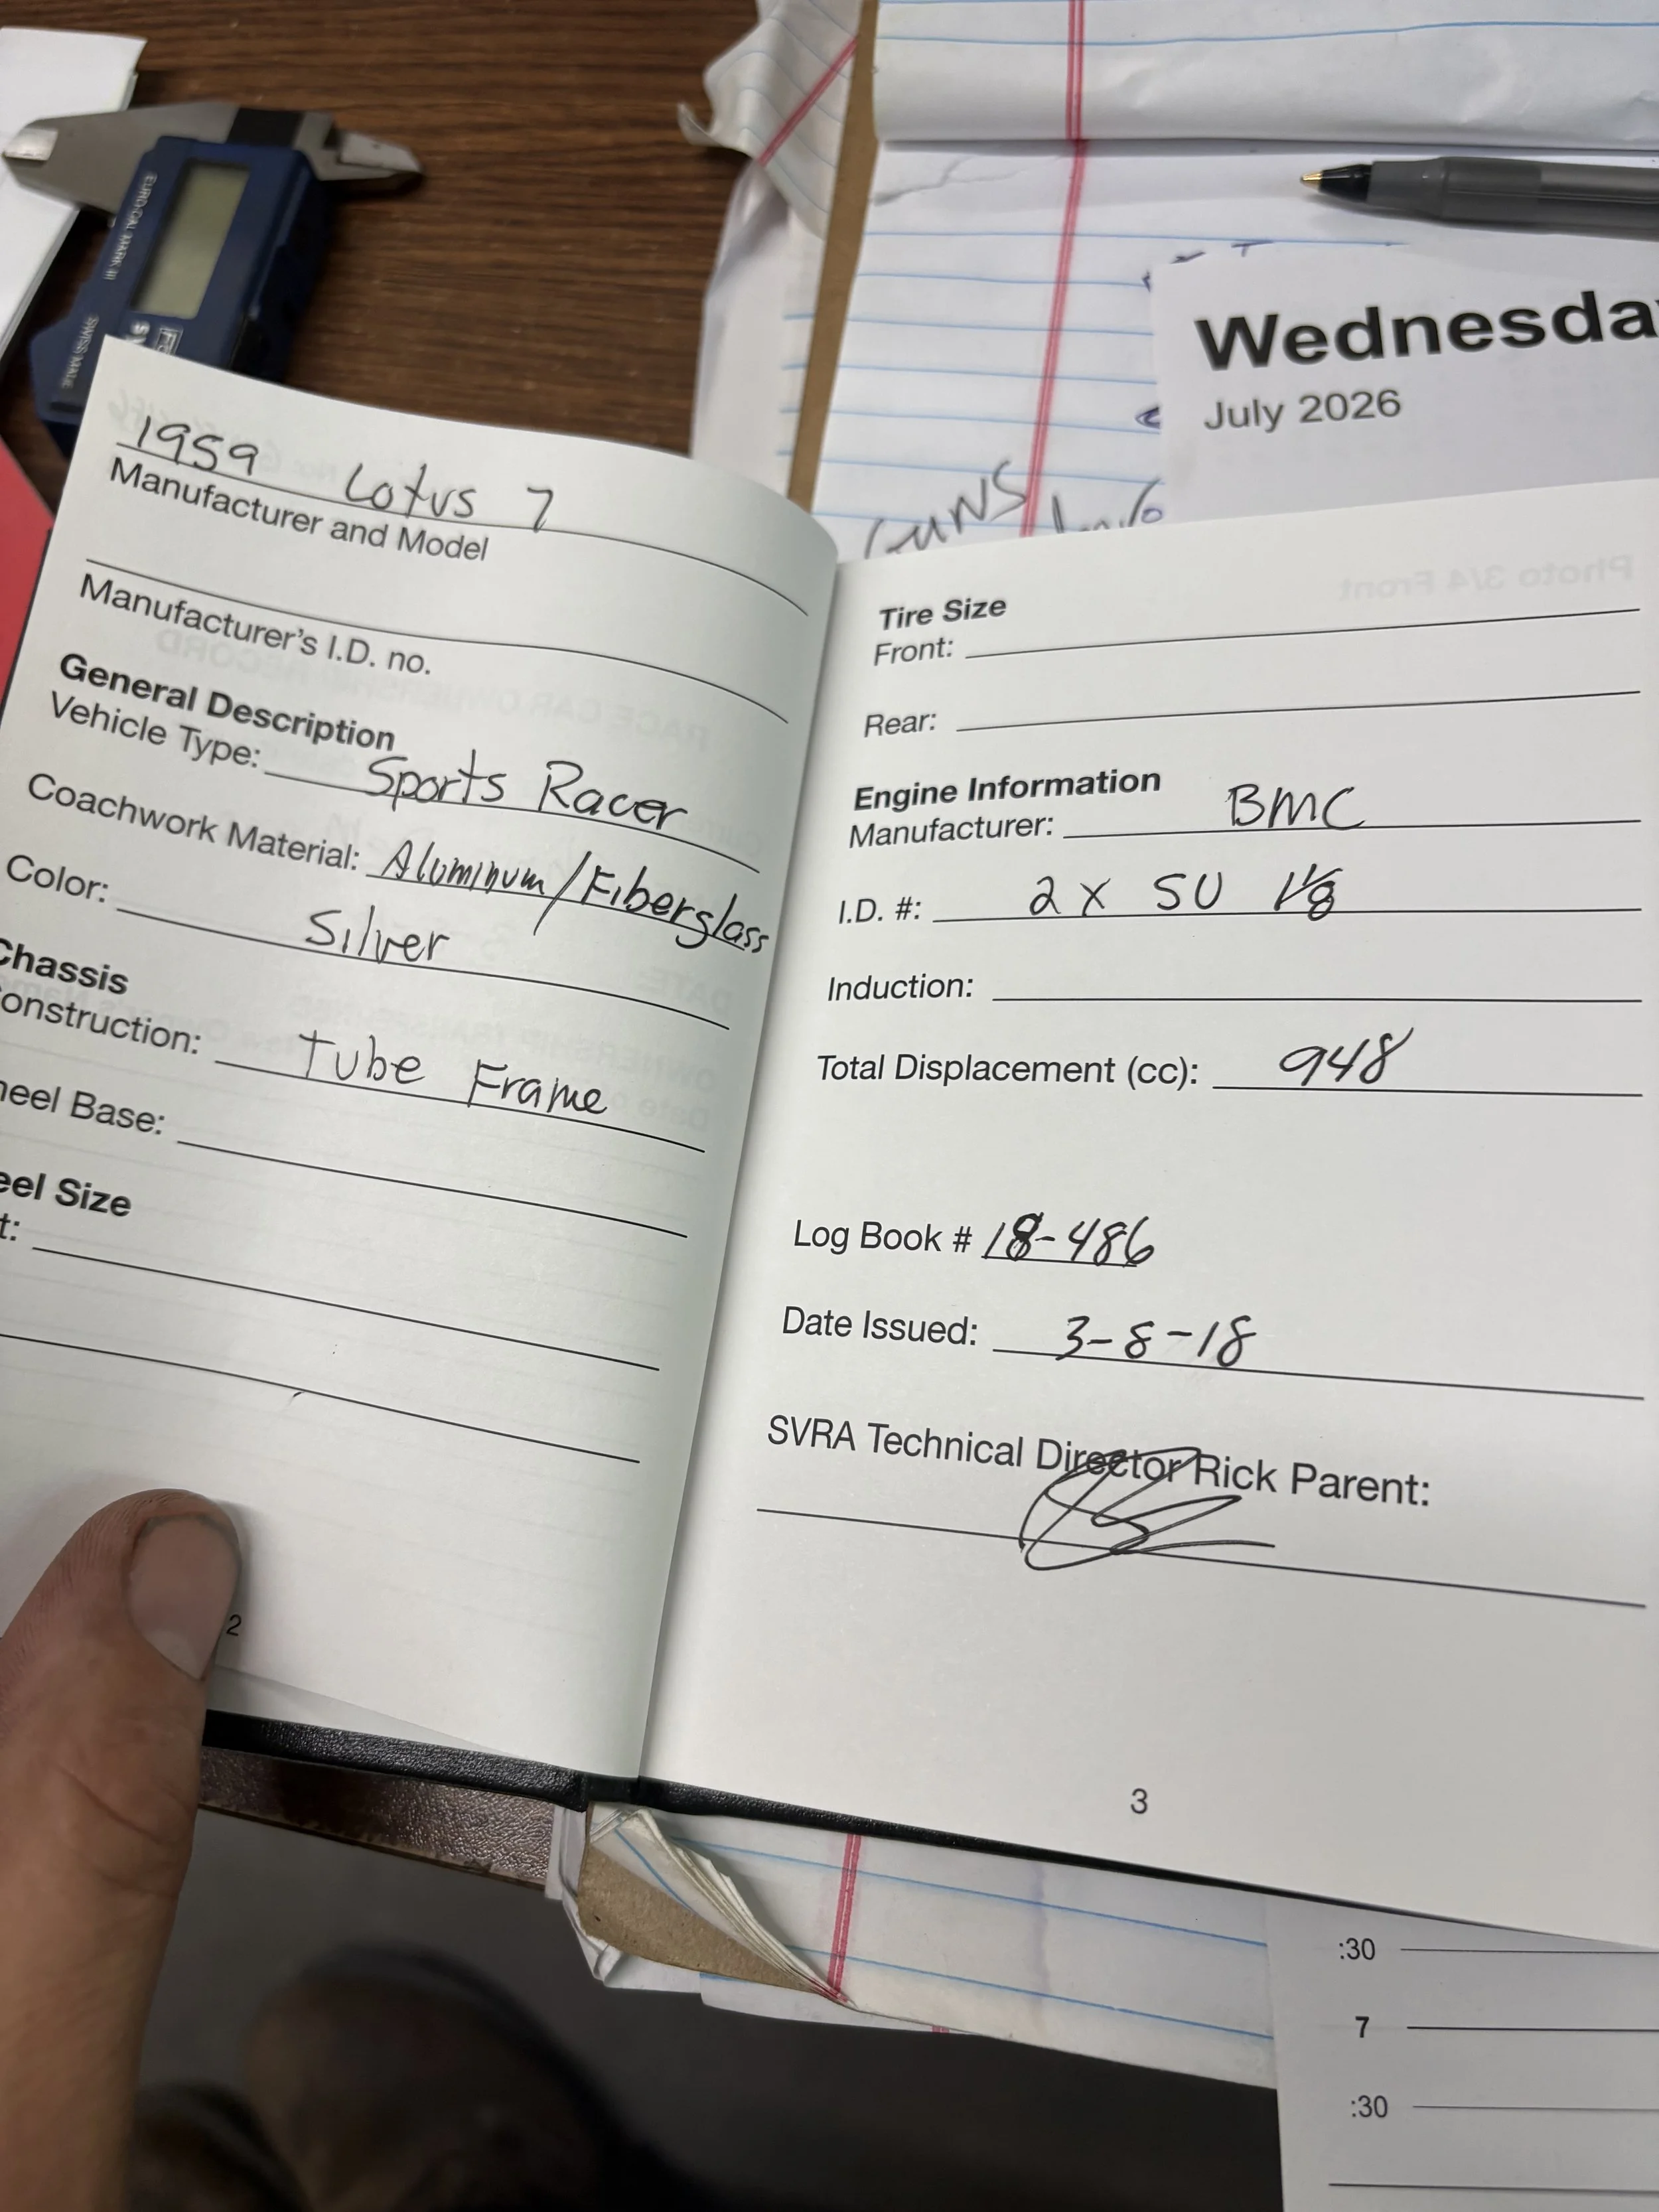 EURO-CAL MARK III
SWISS MADE
Wednesda
July 2026
1959 Lotus 7
Manufacturer and Model
Manufacturer's I.D. no.
General Description
Vehicle Type: Sports Racer
Coachwork Material: Aluminum/Fiberglass
Color: Silver
Chassis
onstruction: Tube Frame
heel Base:
eel Size
t:
2
Tire Size
Front:
Rear:
Engine Information
Manufacturer: BMC
I.D. #: 2 x SU 1⅛
Induction:
Total Displacement (cc): 948
Log Book # 18-486
Date Issued: 3-8-18
SVRA Technical Director Rick Parent:
3
:30
7
:30